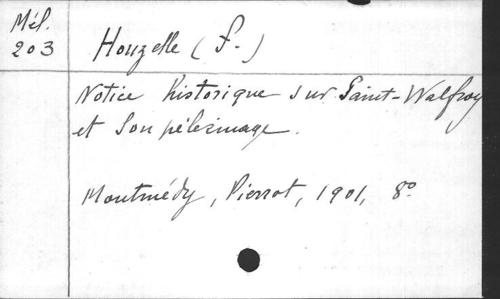 Mél.
203
Houzelle (F.)
Notice historique sur Saint-Walfroy
et son pèlerinage.
Montmédy, Pierrot, 1901, 8º